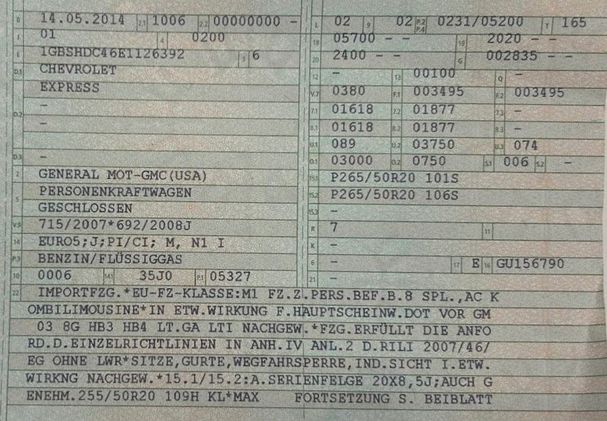 B 14.05.2014 2.1 1006 2.2 00000000 -
J 01 4 0200
E 1GBSHDC46E1126392 3 6
D.1 CHEVROLET
EXPRESS
D.2 -
-
-
D.3 -
2 GENERAL MOT-GMC(USA)
5 PERSONENKRAFTWAGEN
GESCHLOSSEN
V.9 715/2007*692/2008J
14 EURO5;J;PI/CI; M, N1 I
P.3 BENZIN/FLÜSSIGGAS
10 0006 14.1 35J0 P.1 05327
L 02 9 02 P.2 P.4 0231/05200 T 165
18 05700 - - 19 2020 - -
20 2400 - - G 002835 - -
12 - 13 00100 Q -
V.7 0380 F.1 003495 F.2 003495
7.1 01618 7.2 01877 7.3 -
8.1 01618 8.2 01877 8.3 -
U.1 089 U.2 03750 U.3 074
O.1 03000 O.2 0750 S.1 006 S.2 -
15.1 P265/50R20 101S
15.2 P265/50R20 106S
15.3 -
R 7 11
K -
6 - 17 E 16 GU156790
21 -
22 IMPORTFZG.*EU-FZ-KLASSE:M1 FZ.Z.PERS.BEF.B.8 SPL.,AC K
OMBILIMOUSINE*IN ETW.WIRKUNG F.HAUPTSCHEINW.DOT VOR GM
03 8G HB3 HB4 LT.GA LTI NACHGEW.*FZG.ERFÜLLT DIE ANFO
RD.D.EINZELRICHTLINIEN IN ANH.IV ANL.2 D.RILI 2007/46/
EG OHNE LWR*SITZE,GURTE,WEGFAHRSPERRE,IND.SICHT I.ETW.
WIRKNG NACHGEW.*15.1/15.2:A.SERIENFELGE 20X8,5J;AUCH G
ENEHM.255/50R20 109H KL*MAX FORTSETZUNG S. BEIBLATT